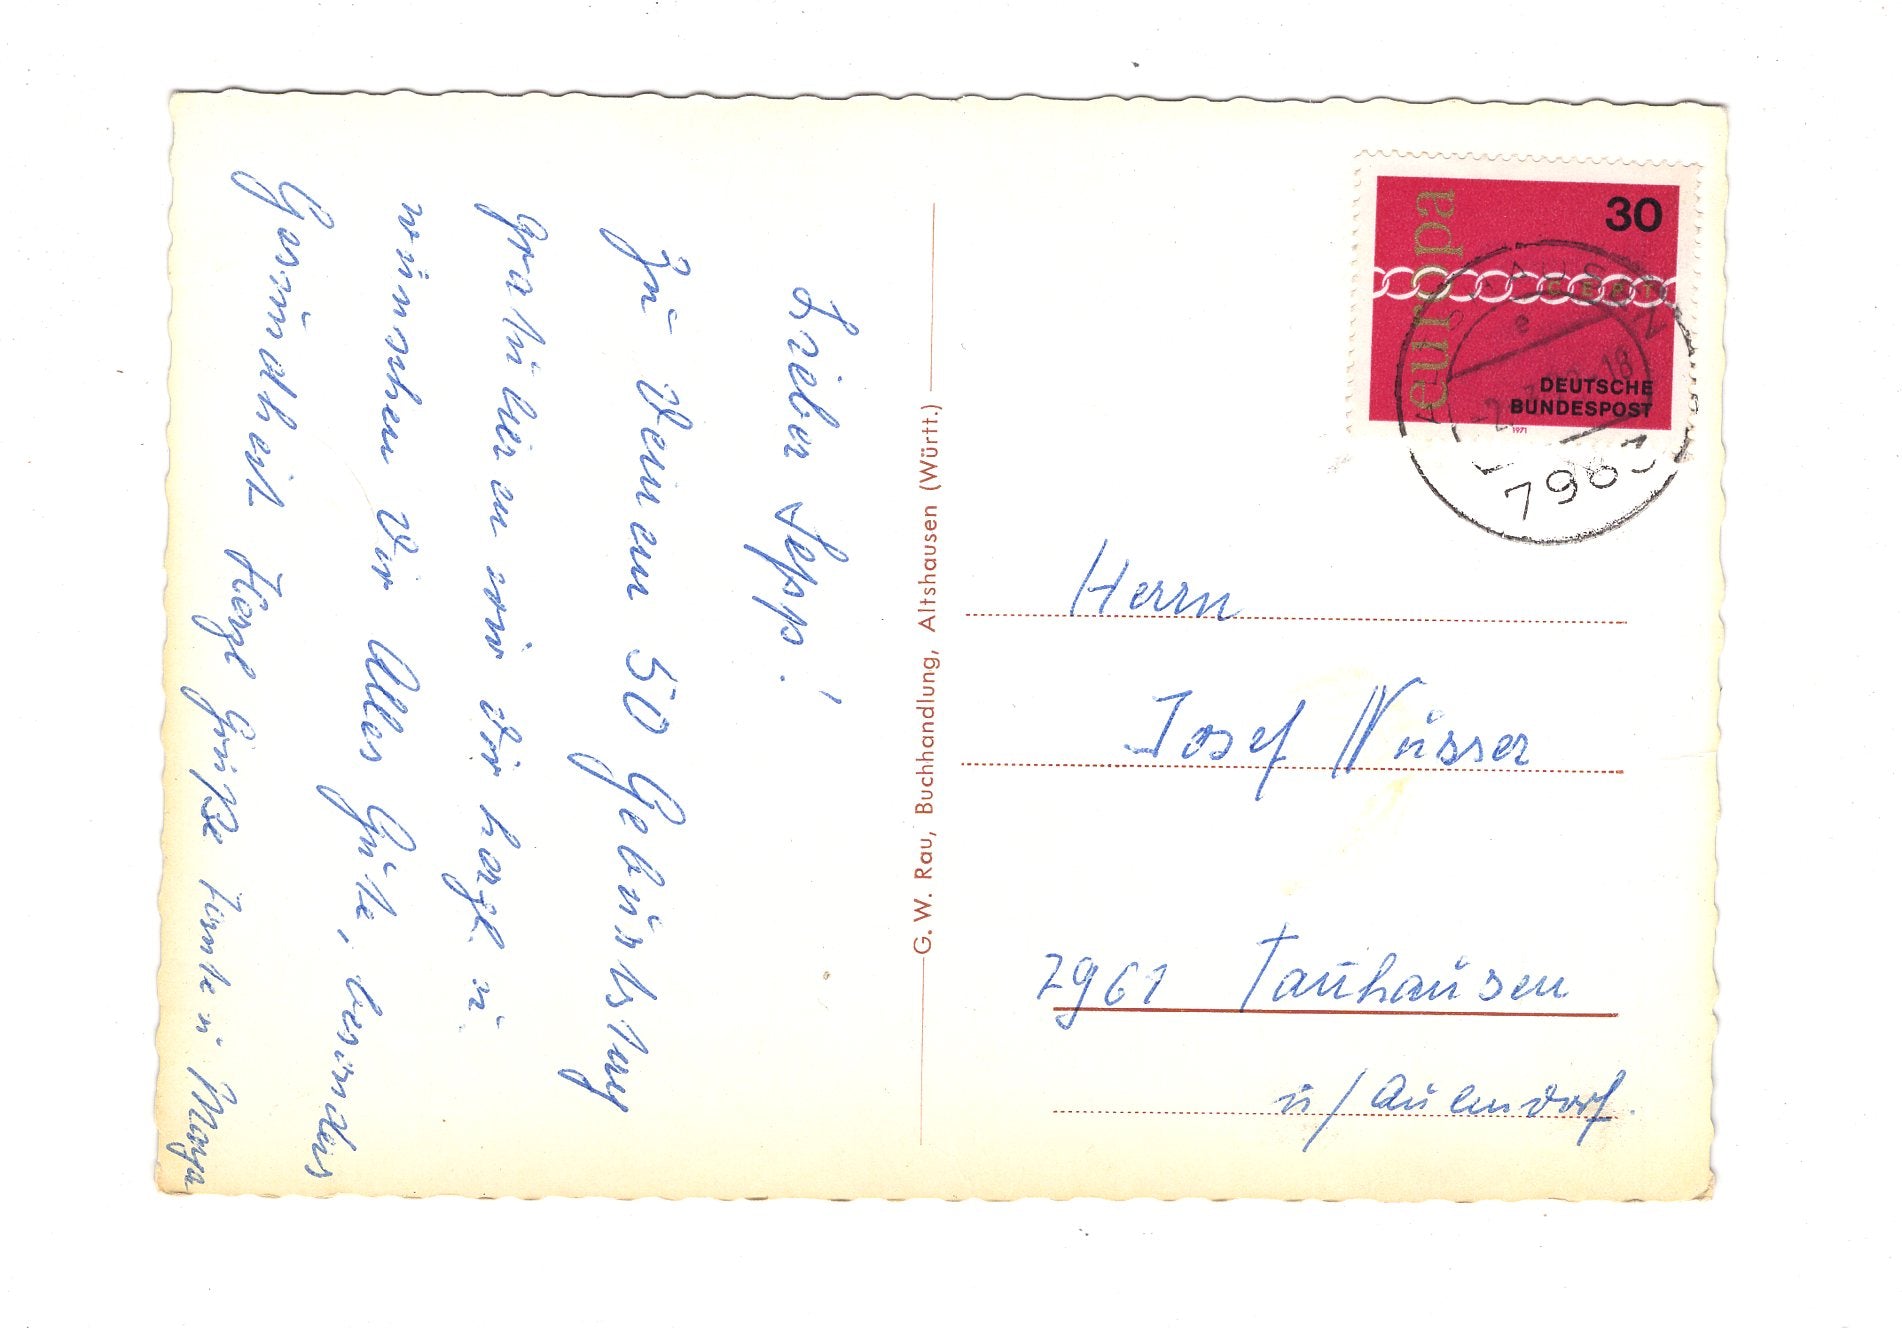 Lieber Sepp!
Zu Deinem 50 Geburtstag
gratulieren wir Dir herzl. u.
wünschen Dir Alles Gute, besonders
Gesundheit. Herzl Grüße Tante u.
G. W. Rau, Buchhandlung, Altshausen (Württ.)
europa
30
CEPT
DEUTSCHE
BUNDESPOST
1971
e
18
796
Herrn
Josef Nusser
7961 Tauhausen
ü/Aulendorf.